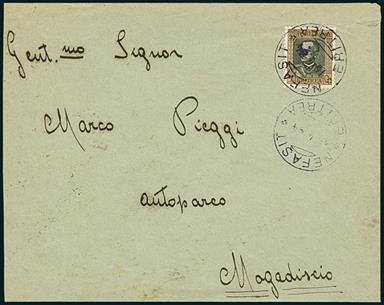 Gent.mo Signor
NEFASIT
ERITREA
NEFASIT
ERITREA
Marco Pieggi
autoparco
Mogadiscio